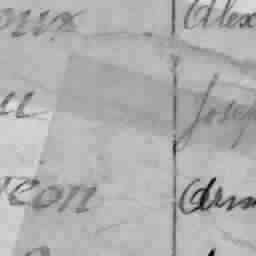 eux Alex
u Josep
eon Arm